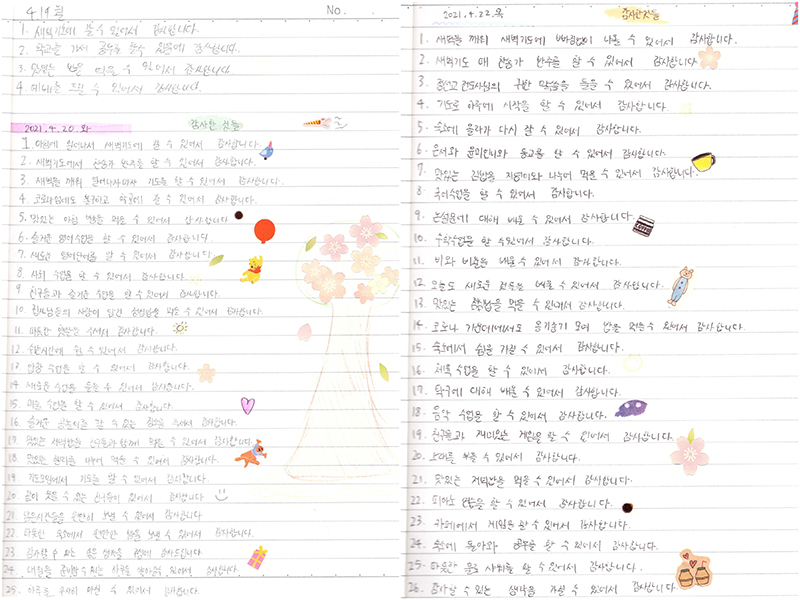 4/19 월
No.
1. 새벽기도에 올 수 있어서 감사합니다.
2. 학교를 가서 공부를 할수 있음에 감사합니다.
3. 맛있는 밥을 먹을 수 있어서 감사합니다.
4. 예배를 드릴 수 있어서 감사합니다.
2021. 4. 20. 화
감사한 것들
1. 아침에 일어나서 새벽기도에 갈 수 있어서 감사합니다.
2. 새벽기도에서 찬송가 반주를 할 수 있어서 감사합니다.
3. 새벽을 깨워 기도를 할 수 있어서 감사합니다.
4. 코로나임에도 불구하고 학교에 갈 수 있어서 감사합니다.
5. 맛있는 아침 먹을 수 있어서 감사합니다
6. 즐거운 영어수업을 할 수 있어서 감사합니다.
7. 새로운 영어단어를 알 수 있어서 감사합니다
8. 사회 수업을 할 수 있어서 감사합니다
9. 친구들과 즐거운 수업을 할 수 있어서 감사합니다.
10. 사랑이 담긴 점심밥을 먹을 수 있어서 감사합니다.
11. 따뜻한 햇빛을 주셔서 감사합니다.
12. 수 있어서 감사합니다.
13. 수업을 할 수 있어서 감사합니다.
14. 새로운 수업을 들을 수 있어서 감사합니다.
15. 미술 수업을 할 수 있어서 감사합니다.
16. 즐거운 할 수 있는 주셔서 감사합니다.
17. 맛있는 저녁밥을 친구들과 함께 먹을 수 있어서 감사합니다
18. 맛있는 나누어 먹을 수 있어서 감사합니다.
19. 기도모임에서 기도를 할 수 있어서 감사합니다.
20. 같이 웃을 수 있는 친구들이 있어서 감사합니다
21. 보낼 수 있어서 감사합니다
22. 따뜻한 숙소에서 보낼 수 있어서 감사합니다.
23. 감사할 수 있는 감사드립니다.
24. 내일을 준비할 수 있는 있어서 감사합니다.
25. 하루를 무사히 마칠 수 있어서 감사합니다.
2021. 4. 22. 목
감사한 것들
1. 새벽을 깨워 새벽기도에 빠짐없이 나올 수 있어서 감사합니다.
2. 새벽기도 때 찬송가 반주를 할 수 있어서 감사합니다
3. 전도사님의 귀한 말씀을 들을 수 있어서 감사합니다.
4. 기도로 하루에 시작을 할 수 있어서 감사합니다.
5. 숙소에 올라가 다시 잘 수 있어서 감사합니다.
6. 은서와 윤미언니와 등교를 할 수 있어서 감사합니다
7. 맛있는 김밥을 나누어 먹을 수 있어서 감사합니다.
8. 국어수업을 할 수 있어서 감사합니다.
9. 논설문에 대해 배울 수 있어서 감사합니다.
10. 수학수업을 할 수있어서 감사합니다.
11. 비와 비율을 배울 수 있어서 감사합니다.
12. 오늘도 새로운 것들을 배울 수 있어서 감사합니다.
13. 맛있는 점심밥을 먹을 수 있어서 감사합니다.
14. 코로나 가운데에서도 옹기종기 모여 밥을 먹을수 있어서 감사합니다.
15. 숙소에서 쉼을 가질 수 있어서 감사합니다.
16. 체육 수업을 할 수 있어서 감사합니다.
17. 탁구에 대해 배울 수 있어서 감사합니다.
18. 음악 수업을 할 수 있어서 감사합니다.
19. 친구들과 재미있는 게임을 할 수 있어서 감사합니다.
20. 수 있어서 감사합니다.
21. 맛있는 저녁밥을 먹을 수 있어서 감사합니다.
22. 피아노 연습을 할 수 있어서 감사합니다.
23. 카페에서 게임을 할 수 있어서 감사합니다.
24. 숙소에 돌아와 공부를 할 수 있어서 감사합니다.
25. 따뜻한 물로 샤워를 할 수 있어서 감사합니다.
26. 감사할 수 있는 생각을 가질 수 있어서 감사합니다